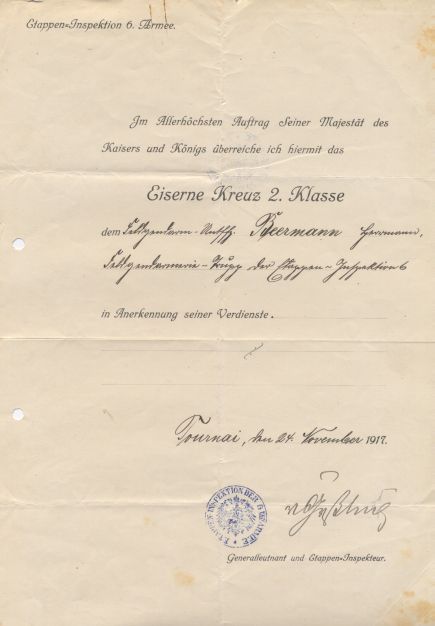 Etappen=Inspektion 6. Armee.
Im Allerhöchsten Auftrag Seiner Majestät des
Kaisers und Königs überreiche ich hiermit das
Eiserne Kreuz 2. Klasse
dem Feldgendarm- Beermann Herrmann,
Feldgendarmerie-Trupp der Etappen-Inspektion 6
in Anerkennung seiner Verdienste.
Tournai, den 24. November 1917.
ETAPPEN-INSPEKTION DER 6. ARMEE
Generalleutnant und Etappen=Inspekteur.